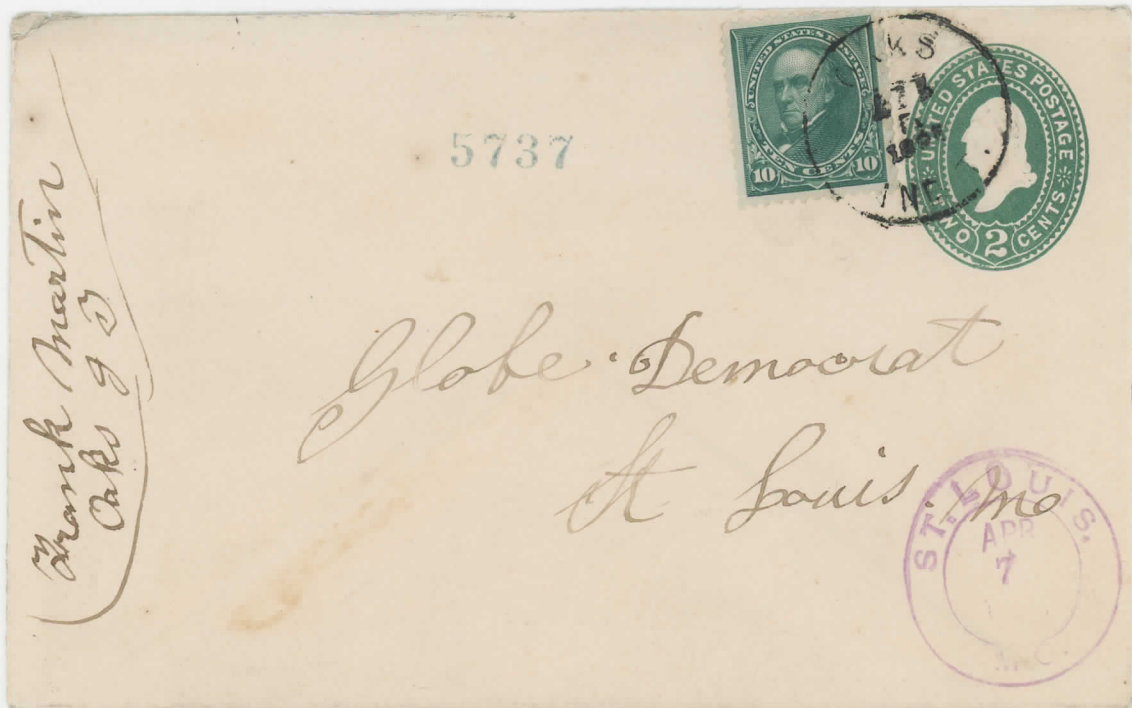 Frank Martin
Oaks I T
5737
UNITED STATES POSTAGE
TEN CENTS
10 10
UNITED STATES POSTAGE
TWO 2 CENTS
Globe Democrat
St Louis. Mo
ST. LOUIS.
APR
7
MO.